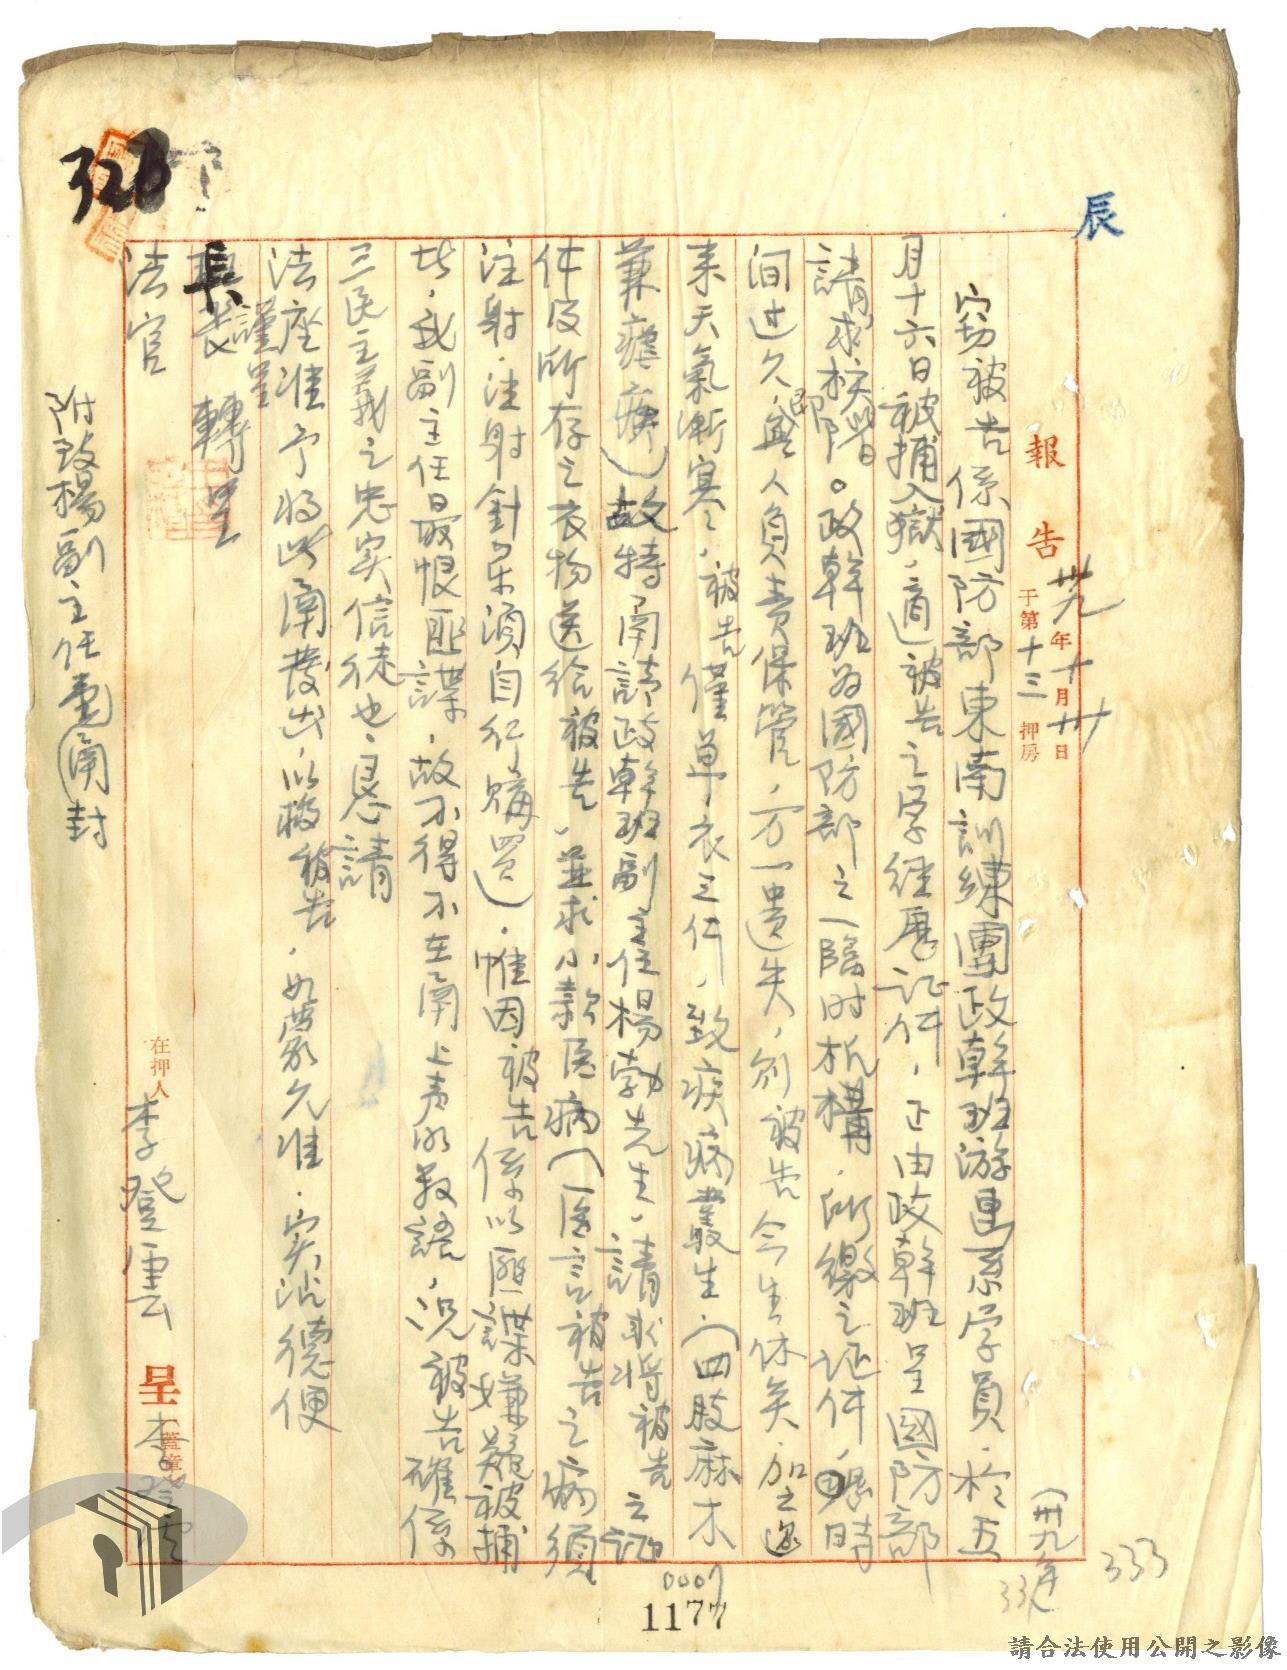 辰
326
報告 卅九年十月卅日
于第十三押房
(卅九年
竊被告係國防部東南訓練團政幹班游連系学員，於五
月十六日被捕入獄，適被告之学經歷证件，正由政幹班呈國防部
請求核階。政幹班为國防部之一臨时机構，所繳之证件，時
间过久，即無人負責保管，万一遺失，則被告今生休矣，加之邇
来天氣漸寒，被告僅单衣三件，致疾病叢生，(四肢麻木
兼瘧疾)故特函請政幹班副主任楊勃先生，請求將被告之证
件及所存之衣物送给被告，並求小款医病(医言被告之病須
注射，注射針药須自行購買)，惟因被告係以匪諜嫌疑被捕
我副主任最恨匪諜，故不得不在函上声明数語，况被告確係
三民主義之忠实信徒也，恳請
法座准予將此函發出，以救被告，如蒙允准，实沾德便
謹呈
長 轉呈
法官
附致楊副主任函封
在押人 李登雲 呈 (蓋章)
李登雲
333
0007
1177
請合法使用公開之影像